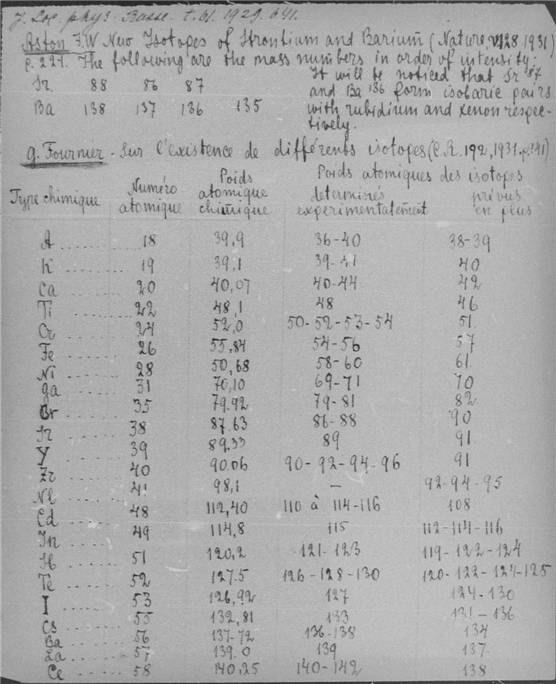 J. Soc. phys. Basse. t. 61. 1929. 641.
Aston F.W New Isotopes of Strontium and Barium (Nature, 128. 1931)
p. 221. The following are the mass numbers in order of intensity:
Sr 88 86 87 It will be noticed that Sr 87
and Ba 136 form isobaric pairs
Ba 138 137 136 135 with rubidium and xenon respec-
tively.
G. Fournier - Sur l'existence de différents isotopes (C.R. 192, 1931. p. 141)
Type chimique Numéro atomique Poids atomique chimique Poids atomiques des isotopes
determinés experimentalement prévus en plus
A ...... 18 39,9 36-40 38-39
K ...... 19 39,1 39-41 40
Ca ...... 20 40,07 40-44 42
Ti ...... 22 48,1 48 46
Cr ...... 24 52,0 50-52-53-54 51
Fe ...... 26 55,84 54-56 57
Ni ...... 28 50,68 58-60 61
Ga ...... 31 70,10 69-71 70
Br ...... 35 79.92 79-81 82
Sr ...... 38 87.63 86-88 90
Y ...... 39 89.33 89 91
Zr ...... 40 90.06 90-92-94-96 91
Nb ...... 41 98,1 — 92-94-95
Cd ...... 48 112,40 110 à 114-116 108
In ...... 49 114,8 115 112-114-116
Sb ...... 51 120,2 121-123 119-122-124
Te ...... 52 127.5 126-128-130 120-122-124-125
I ...... 53 126,92 127 124-130
Cs ...... 55 132,81 133 131-136
Ba ...... 56 137-72 136-138 134
La ...... 57 139.0 139 137.
Ce ...... 58 140,25 140-142 138